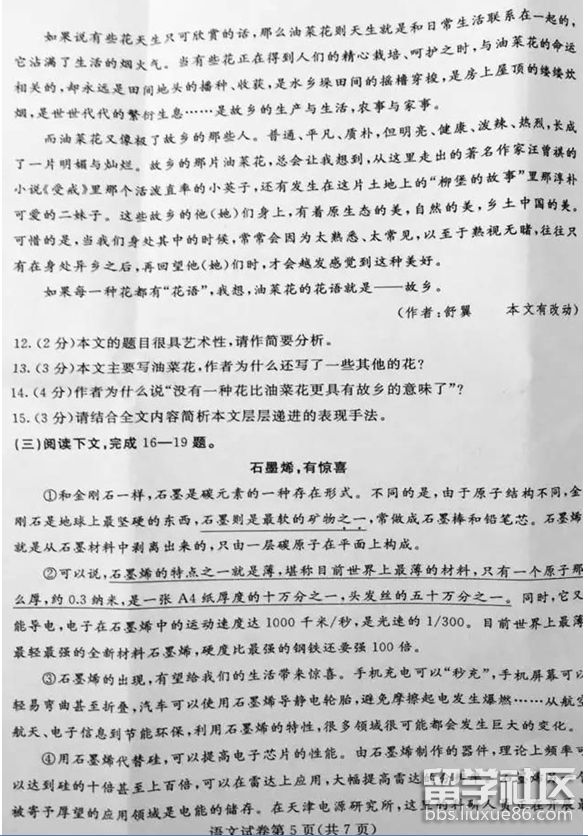 如果说有些花天生只可欣赏的话，那么油菜花则天生就是和日常生活联系在一起的，
它沾满了生活的烟火气。当有些花正在得到人们的精心栽培、呵护之时，与油菜花的命运
相关的，却永远是田间地头的播种、收获，是水乡垛田间的摇橹穿梭，是房上屋顶的缕缕炊
烟，是世世代代的繁衍生息……是故乡的生产与生活，农事与家事。
而油菜花又像极了故乡的那些人。普通、平凡、质朴，但明亮、健康、泼辣、热烈，长成
了一片明媚与灿烂。故乡的那片油菜花，总会让我想到，从这里走出的著名作家汪曾祺的
小说《受戒》里那个活泼直率的小英子，还有发生在这片土地上的“柳堡的故事”里那淳朴
可爱的二妹子。这些故乡的他(她)们身上，有着原生态的美，自然的美，乡土中国的美。
可惜的是，当我们身处其中的时候，常常会因为太熟悉、太常见，以至于熟视无睹，往往只
有在身处异乡之后，再回望他(她)们时，才会越发感觉到这种美好。
如果每一种花都有“花语”，我想，油菜花的花语就是——故乡。
(作者：舒翼 本文有改动)
12.(2分)本文的题目很具艺术性，请作简要分析。
13.(3分)本文主要写油菜花，作者为什么还写了一些其他的花？
14.(4分)作者为什么说“没有一种花比油菜花更具有故乡的意味了”？
15.(3分)请结合全文内容简析本文层层递进的表现手法。
(三)阅读下文，完成16—19题。
石墨烯，有惊喜
①和金刚石一样，石墨是碳元素的一种存在形式。不同的是，由于原子结构不同，金
刚石是地球上最坚硬的东西，石墨则是最软的矿物之一，常做成石墨棒和铅笔芯。石墨烯
就是从石墨材料中剥离出来的，只由一层碳原子在平面上构成。
②可以说，石墨烯的特点之一就是薄，堪称目前世界上最薄的材料，只有一个原子那
么厚，约0.3纳米，是一张A4纸厚度的十万分之一，头发丝的五十万分之一。同时，它又
能导电，电子在石墨烯中的运动速度达1000千米/秒，是光速的1/300。目前世界上最薄
最轻最强的全新材料石墨烯，硬度比最强的钢铁还要强100倍。
③石墨烯的出现，有望给我们的生活带来惊喜。手机充电可以“秒充”，手机屏幕可以
轻易弯曲甚至折叠，汽车可以使用石墨烯导静电轮胎，避免摩擦起电发生爆燃……从航空
航天、电子信息到节能环保，利用石墨烯的特性，很多领域很可能都会发生巨大的变化。
④用石墨烯代替硅，可以提高电子芯片的性能。由石墨烯制作的器件，理论上频率可
以达到硅的十倍甚至上百倍，可以在雷达上应用，大幅提高雷达
被寄予厚望的应用领域是电能的储存。在天津电源研究所，这里的科研人员
语文试卷第5页(共7页)
留学社区
bbs.liuxue86.com